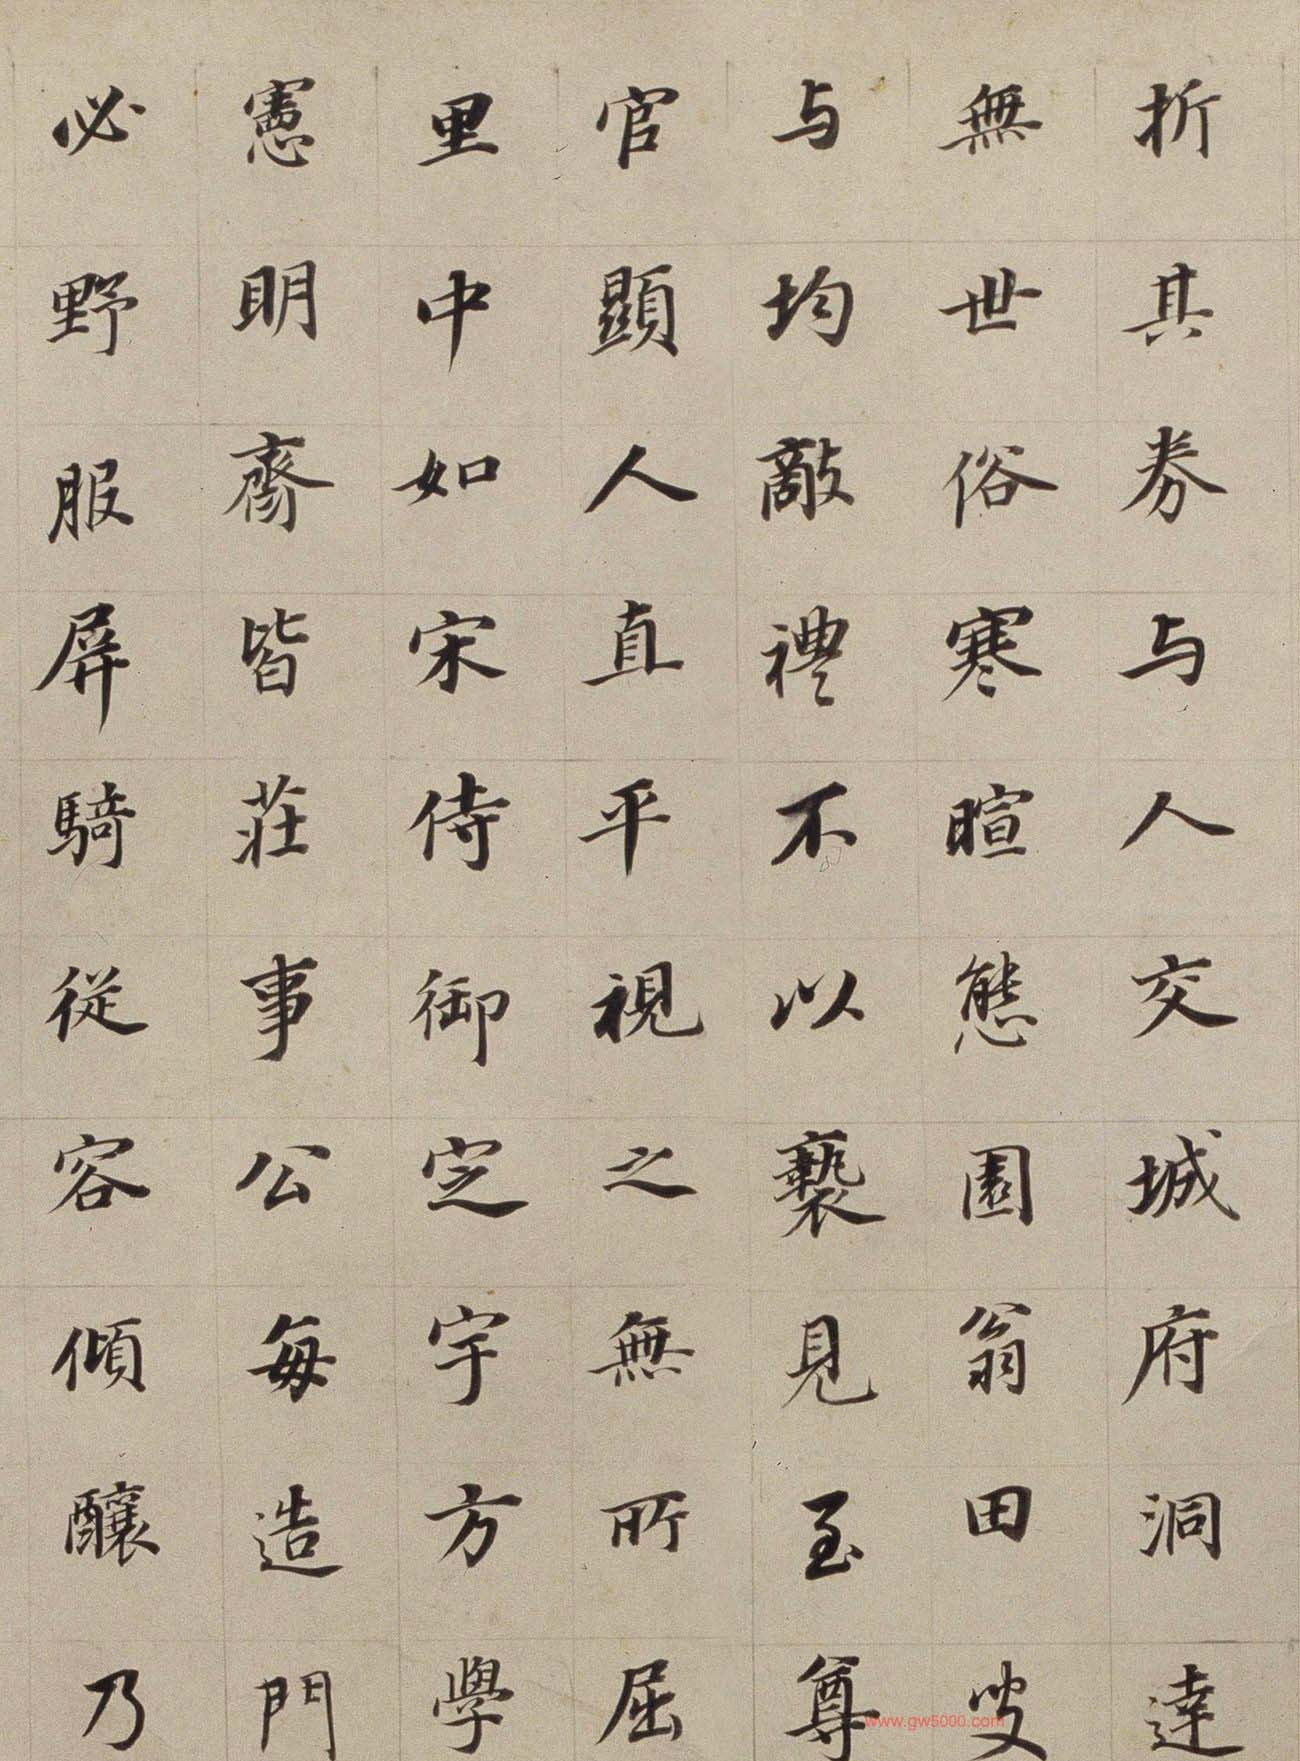 折其券与人交城府洞達
無世俗寒暄態園翁田叟
与均敵禮不以褻見至尊
官顯人直平視之無所屈
里中如宋侍御定宇方學
憲明齋皆莊事公每造門
必野服屏騎從容傾釀乃
www.gw5000.com